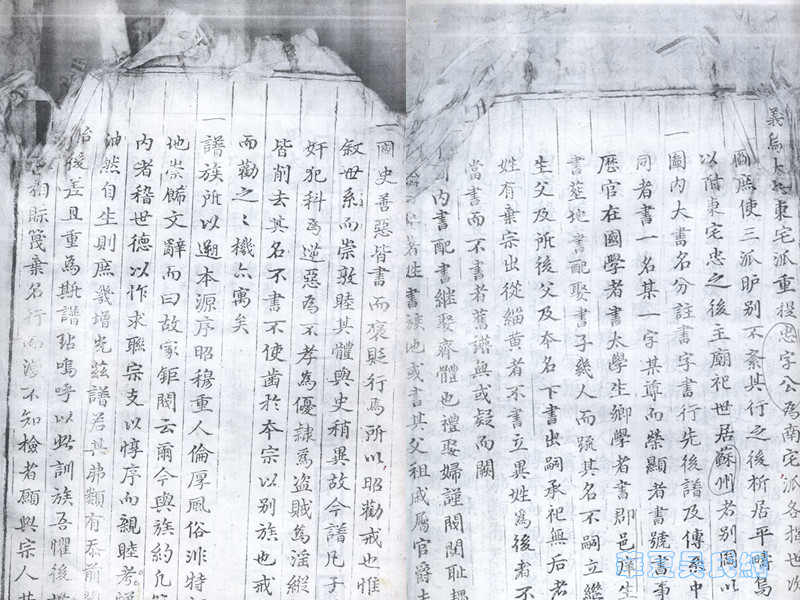 義烏 東宅派重提忠字公為南宅派各摺世次
圖庶使三派昈别不紊其行之後析居平疇烏
以階東宅忠之後主廟祀世居蘇州者别圖以
一圖内大書名分註書字書行先後譜及傳系中
同者書一名某一字某尊而榮顯者書號書事
歷官在國學者書太學生鄉學者書郡邑庠生
書塟地書配娶書子幾人而䟽其名不嗣立繼
生父及所後父及本名下書出嗣承祀無后者
姓有棄宗出從緇黄者不書立異姓為後者不
當書而不書者舊譜無或疑而闕
内書配書継娶齊體也禮娶婦謹閥閱耻耦
者姓書族地或書其父祖戚屬官爵
一國史善惡皆書而褒貶行焉所以昭勸戒也惟
叙世系而崇敦睦其體與史稍異故今譜凡子
奸犯科為逆惡為不孝為優隷為盗賊為淫縱
皆削去其名不書不使齒於本宗以别族也戒
而勸之之機亦寓矣
一譜族所以遡本源序昭穆重人倫厚風俗非特
地崇餙文辭而曰故家鉅閥云爾今與族約凡
内者稽世德以作求聯宗支以惇序而親睦孝
油然自生則庶幾增光兹譜若其弗類有忝前
後羞且重為斯譜玷嗚呼以此訓族吾懼後
相賑篾棄名行而漫不知檢者願與宗人
華夏吴氏網